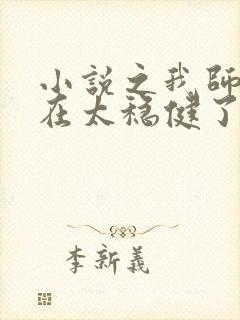 小説之我師
在太穩健了
李新義